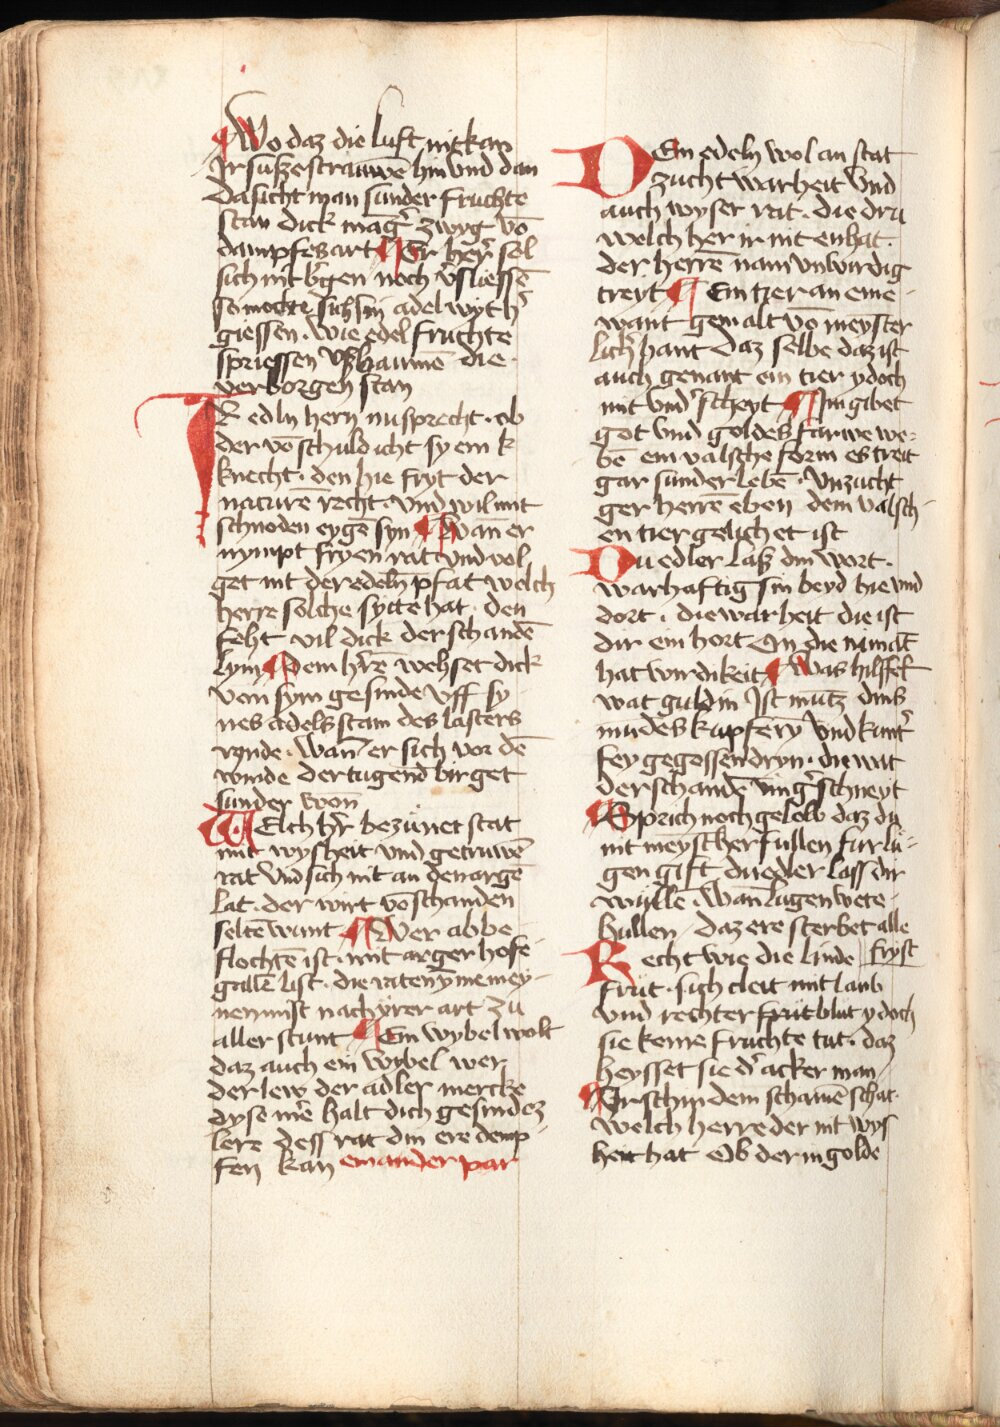 Wo daz die luft nit kan
Ir susze strauwē hin vnd dan
da sicht man sunder fruchte
stan dick mag̕ zwyg vō
dampfes art Er her̕ sol
sich nit b̕gen noch v̕sliessē
so mocht sich sin adel wyt h̕
giessen . wie edel fruchte
spriessen vsz baumē die
verborgen stan
Ir edln hern nu sprecht . ob
der vō schuld icht sy ein k
knecht . den hie fryt der
naturē recht . vnd wil mit
schnoden eygē syn Wan̄ er
nympt fryen rat vnd vol
get nit der edeln pfat welch
herre solche sytte hat . den
seht vil dick der schandē
lym Dem h̕rē wehset dick
von sym gesinde vff sy
nes adels stam des lasters
rynde . Wan̄ er sich vor dē
winde der tugend birget
sunder won̄
Welch h̕r bezunet stat
mit wysheit vnd getruwē
rat vnd sich nit an den argē
lat . der wirt vō schanden
seltē wunt Wer abbe
flochtē ist . mit arger hofe
gallē list . die raten ym mey
nennist nach yrer art zu
aller stunt Ein wybel wolt
daz auch ein wybel wer
der lew der adler mercke
dyse mē halt dich gesindez
lere dess rat din ere demp
fen kan ein ander par
Dem edeln wol an stat
zucht warheit vnd
auch wyser rat . die dru
welch her in nit enhat .
der herrē nam vnwirdig
treyt Ein tier an eine
want gemalt vō meyster
lich̕ hant daz selbe daz ist
auch genant ein tier ydoch
mit vnd̕scheyt Im gibet
got vnd goldes farwe we
bē ein valsche form es treit
gar sunder lebē . vnzucht
ger herrē eben dem valsch
en tier gelichet ist
Du edler lasz din wort .
warhaftig sin beyd hie vnd
dort . die warheit die ist
dir ein hort On die nimāt
hat wirdikeit Was hilffet
wat guldin Ist mūtz dins
mundes kupferȳ vnd kunt̕
fey gegossen dryn . die wat
der schandē din g̕ schneyt
Sprich noch gelob daz du
nit meyst her fullen fur lu
gen gift du edler lass dir
wille . Wan̄ lugen wete
hullen daz ere sterbet alle
fryst
Recht wie die linde
frut . sich cleit mit laub
vnd rechter frūt blut ydoch
sie keine fruchte tut . daz
heysset sie d̕ acker man
Ir schin dem schamē schat
welch herre der nit wys
heit hat Ob der in golde